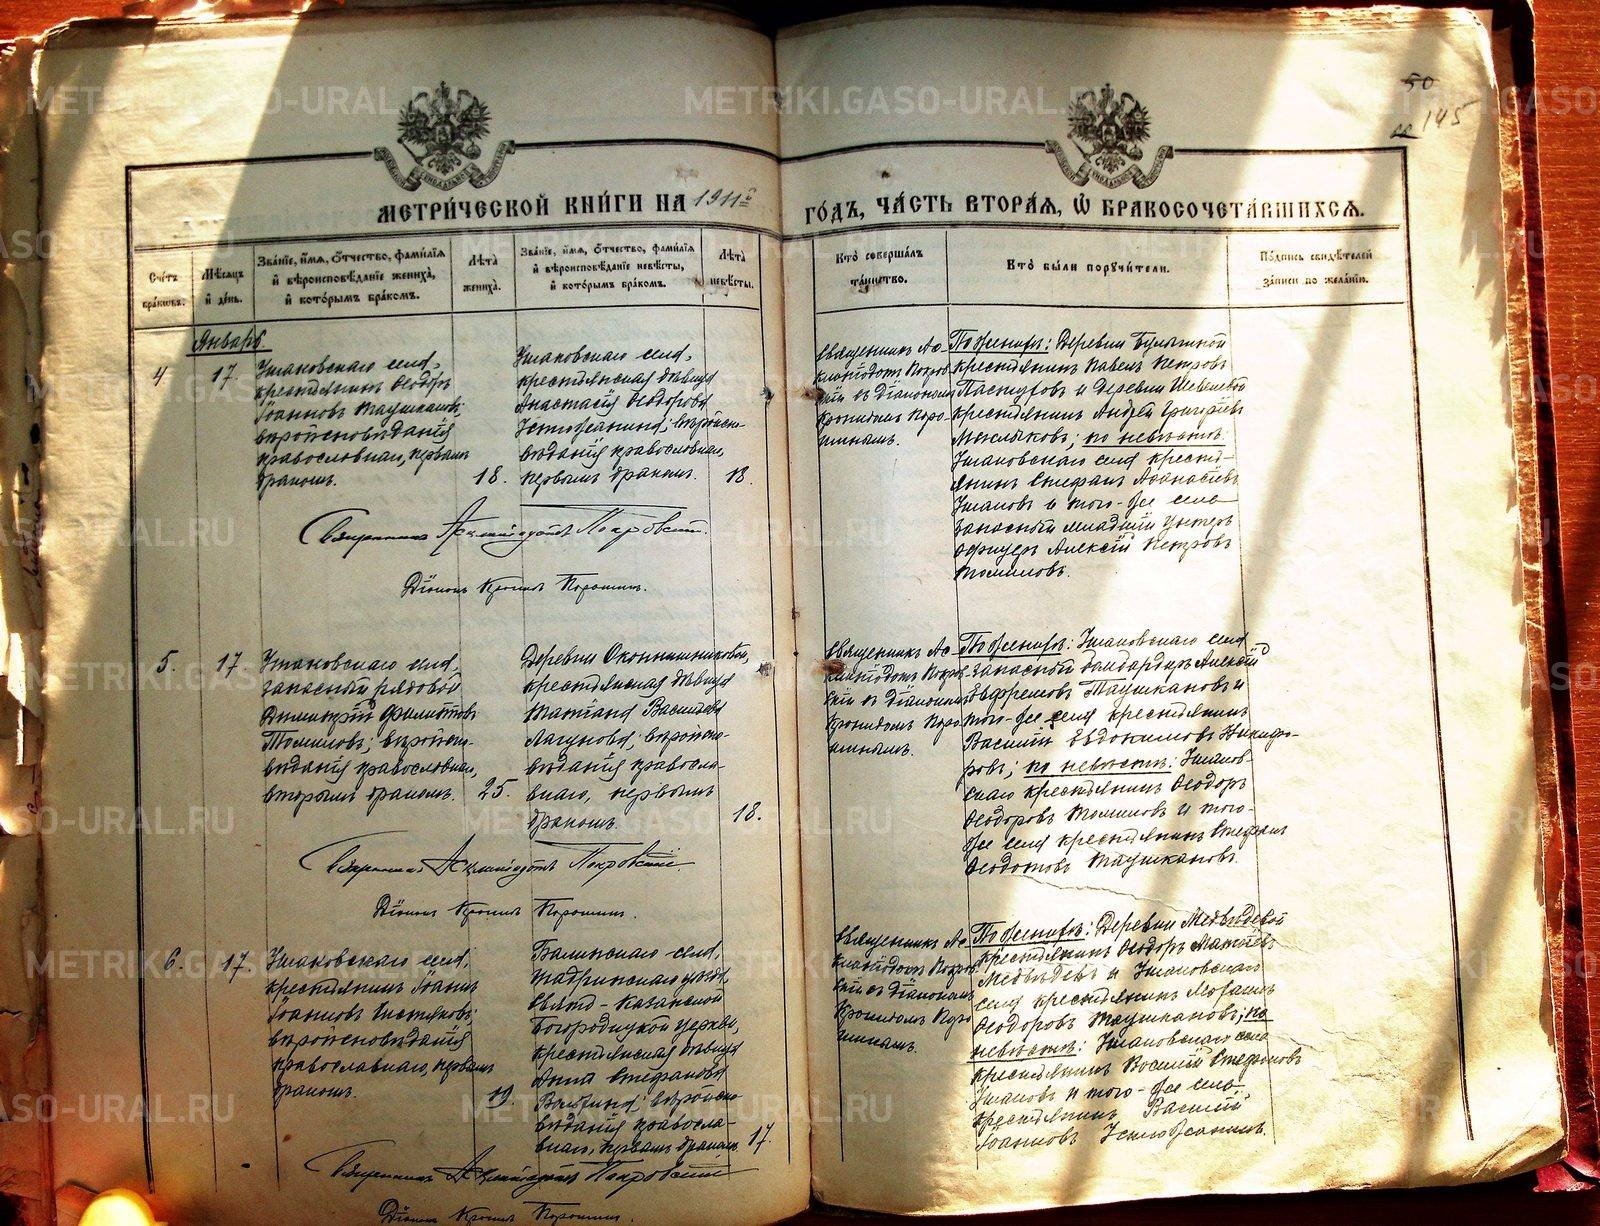 50
145
МЕТРИ́ЧЕСКОЙ КНИ́ГИ НА 1911й
ГО́ДЪ, ЧА́СТЬ ВТОРА́Я, Ѡ БРАКОСОЧЕТА́ВШИХСЯ.
Сче́тъ бра́ковъ.
Мѣ́сяцъ и де́нь.
Зва́нїе, и́мя, о́тчество, фами́лїя
и вѣроисповѣ́данїе жениха́,
и кото́рымъ бра́комъ.
Лѣта̀ жениха̀.
Зва́нїе, и́мя, о́тчество, фами́лїя
и вѣроисповѣ́данїе невѣ́сты,
и кото́рымъ бра́комъ.
Лѣта̀ невѣ́сты.
Кто̀ соверша́лъ
та́инство.
Кто̀ бы́ли поручи́тели.
По́дпись свидѣ́телей
за́писи по жела́нїю.
Январь
4
17.
Ушаковскаго села,
крестьянинъ Ѳеодоръ
Іоанновъ Таушкановъ;
вѣроисповѣданія
православнаго, первымъ
бракомъ.
18.
Ушаковскаго села,
крестьянская дѣвица
Анастасія Ѳеодорова
Устюжанина; вѣроиспо-
вѣданія православнаго,
первымъ бракомъ.
18.
Священникъ Ас-
клипіодотъ Покров-
скій съ діакономъ
Кронидомъ Поро-
шинымъ.
По женихѣ: Деревни
крестьянинъ Павелъ Петровъ
и деревни
крестьянинъ Андрей Григорьевъ
по невѣстѣ:
Ушаковскаго села крестья-
янинъ Стефанъ Аѳанасіевъ
Ушаковъ и того-же села
запасный младшій унтеръ
офицеръ Алексій Петровъ
Томиловъ.
Священникъ Асклипіодотъ Покровскій.
Діаконъ Кронидъ Порошинъ.
5.
17
Ушаковскаго села,
запасный рядовой
Димитрій Филипповъ
Томиловъ; вѣроиспо-
вѣданія православнаго,
вторымъ бракомъ.
25.
Деревни Оконишниковой,
крестьянская дѣвица
Татіана Васильева
Лагунова; вѣроиспо-
вѣданія правосла-
внаго, первымъ
бракомъ.
18.
Священникъ Ас-
клипіодотъ Покров-
скій съ діакономъ
Кронидомъ Поро-
шинымъ.
По женихѣ: Ушаковскаго села
запасный бомбардиръ Алексій
Ефремовъ Таушкановъ и
того-же села крестьянинъ
Василій Евдокимовъ Никифо-
ровъ; по невѣстѣ: Ушаков-
скаго крестьянинъ Ѳеодоръ
Ѳеодоровъ Томиловъ и того-
же села крестьянинъ Стефанъ
Ѳеодотовъ Таушкановъ.
Священникъ Асклипіодотъ Покровскій.
Діаконъ Кронидъ Порошинъ.
6.
17.
Ушаковскаго села,
крестьянинъ Іоаннъ
Іоанновъ Чистяковъ;
вѣроисповѣданія
православнаго, первымъ
бракомъ.
19.
села,
Шадринскаго уѣзда,
Свято-Казанской
Богородицкой церкви,
крестьянская дѣвица
Анна Стефанова
вѣроиспо-
вѣданія правосла-
внаго, первымъ бракомъ.
17.
Священникъ Ас-
клипіодотъ Покров-
скій съ діакономъ
Кронидомъ Поро-
шинымъ.
По женихѣ: Деревни Медвѣдевой
крестьянинъ Ѳеодоръ Матвѣевъ
Медвѣдевъ и Ушаковскаго
села крестьянинъ
Ѳеодоровъ Таушкановъ; по
невѣстѣ: Ушаковскаго села
крестьянинъ Василій Стефановъ
Ушаковъ и того-же села
крестьянинъ Василій
Іоанновъ Устюжанинъ.
Священникъ Асклипіодотъ Покровскій
Діаконъ Кронидъ Порошинъ.
METRIKI.GASO-URAL.RU